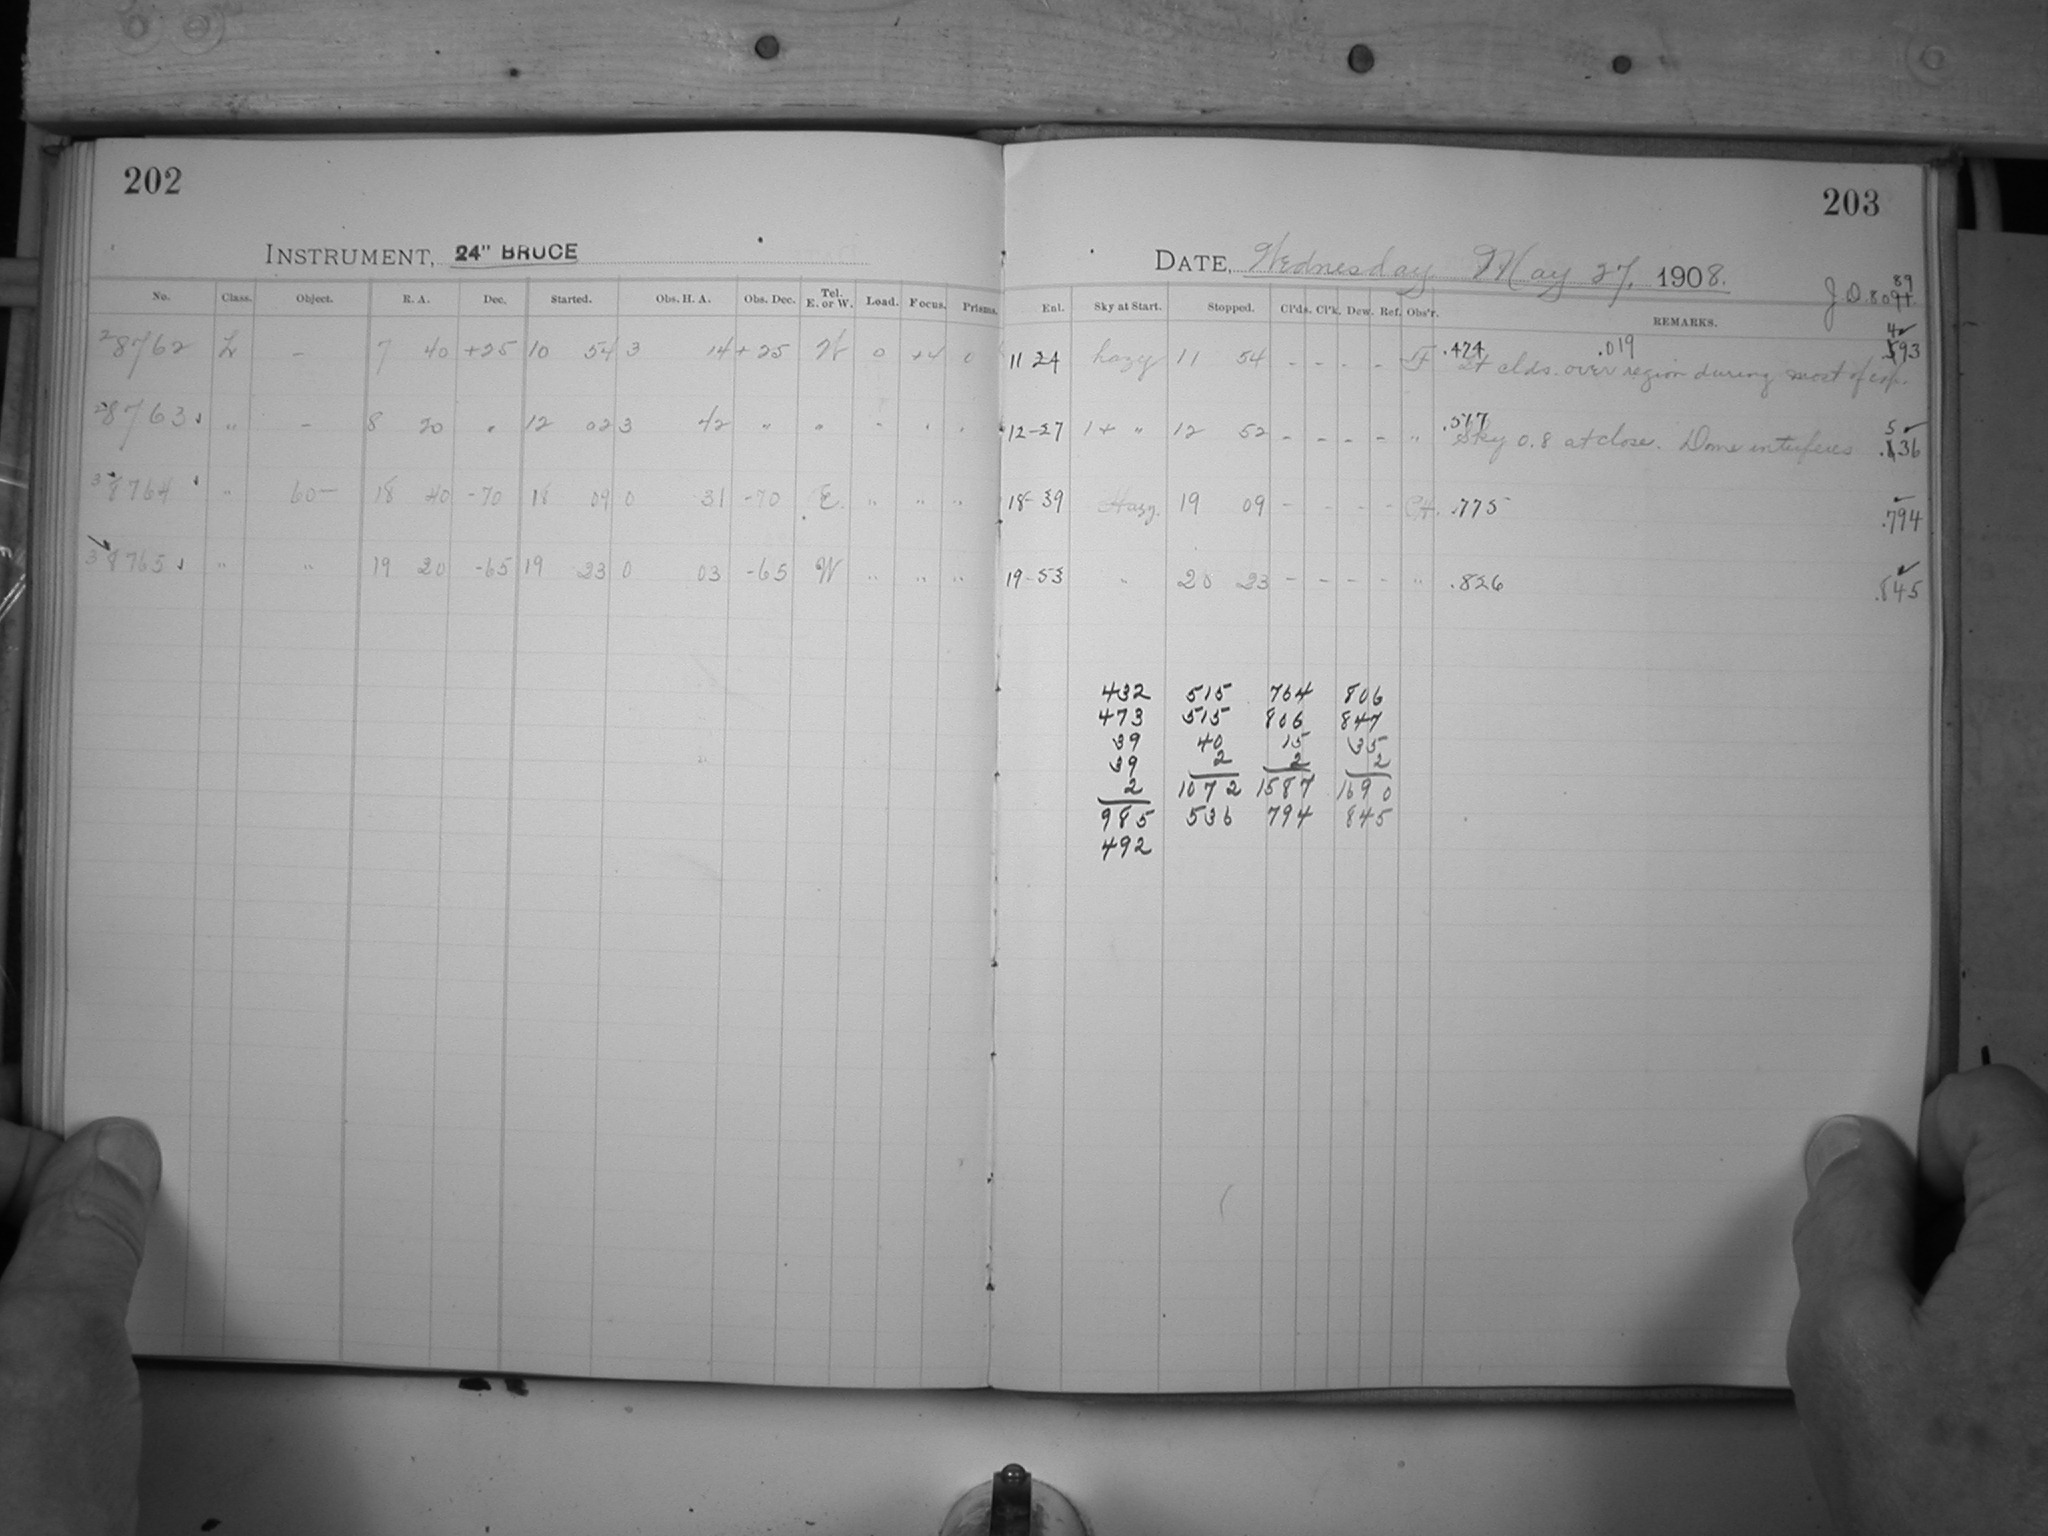 202
INSTRUMENT, 24" BRUCE
No. Class. Object. R. A. Dec. Started. Obs. H. A. Obs. Dec. Tel. E. or W. Load. Focus. Prisms.
28762 L - 7 40 +25 10 54 3 14 +25 W 0 +4 0
28763 " - 8 20 " 12 02 3 42 " " " " "
38764 " 60- 18 40 -70 18 09 0 31 -70 E. " " "
38765 " " 19 20 -65 19 23 0 03 -65 W " " "
203
DATE, Wednesday May 27, 1908.
J. D. 80 89
Enl. Sky at Start. Stopped. Cl'ds. Cl'k. Dew. Ref. Obs'r. REMARKS.
11 24 hazy 11 54 - - - - .474 .019 93
Lt clds. over region during most of exp.
12-27 1+ " 12 52 - - - - " .517 .536
Sky 0.8 at close. Dome interferes
18-39 Hazy. 19 09 - - - - .775 .794
19-53 " 20 23 - - - - " .826 .845
432 515 764 806
473 515 806 847
39 40 15 35
39 2 2 2
2 1072 1587 1690
985 536 794 845
492